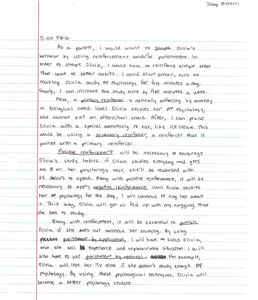 S on FRQ
As a parent, I would want to shape Olivia's
behavior by using reinforcement and/or punishment. In
order to shape Olivia, I would have to reinforce smaller steps
that lead to better habits. I would start small, such as
making Olivia study AP Psychology for five minutes a day.
Slowly, I can increase the study time by five minutes a week.
Next, a primary reinforcer is naturally offering by meeting
a biological need. Until Olivia studies her AP Psychology,
she cannot eat an afterschool snack. After, I can praise
Olivia with a special something to eat, like ice cream. This
would be using a secondary reinforcer, a reinforcer that is
paired with a primary reinforcer.
Positive reinforcement will be necessary to encourage
Olivia's study habits. If Olivia studies everyday and gets
an A on her psychology test, she'll be rewarded with
25 dollars to spend. Along with positive reinforcement, it will be
necessary to apply negative reinforcement. Until Olivia studies
her AP psychology for the day, I will continue to nag her about
it. This way, Olivia will get so fed up with my nagging that
she has to study.
Along with reinforcement, it will be essential to punish
Olivia if she does not construct her studying. By using
punishment by application, I will have to scold Olivia,
and she will experience and unpleasurable situation. I will
also have to use punishment by removal. For example,
Olivia will lose her TV even if she doesn't study enough AP
Psychology. By using these psychological techniques, Olivia will
become a better psychology student.